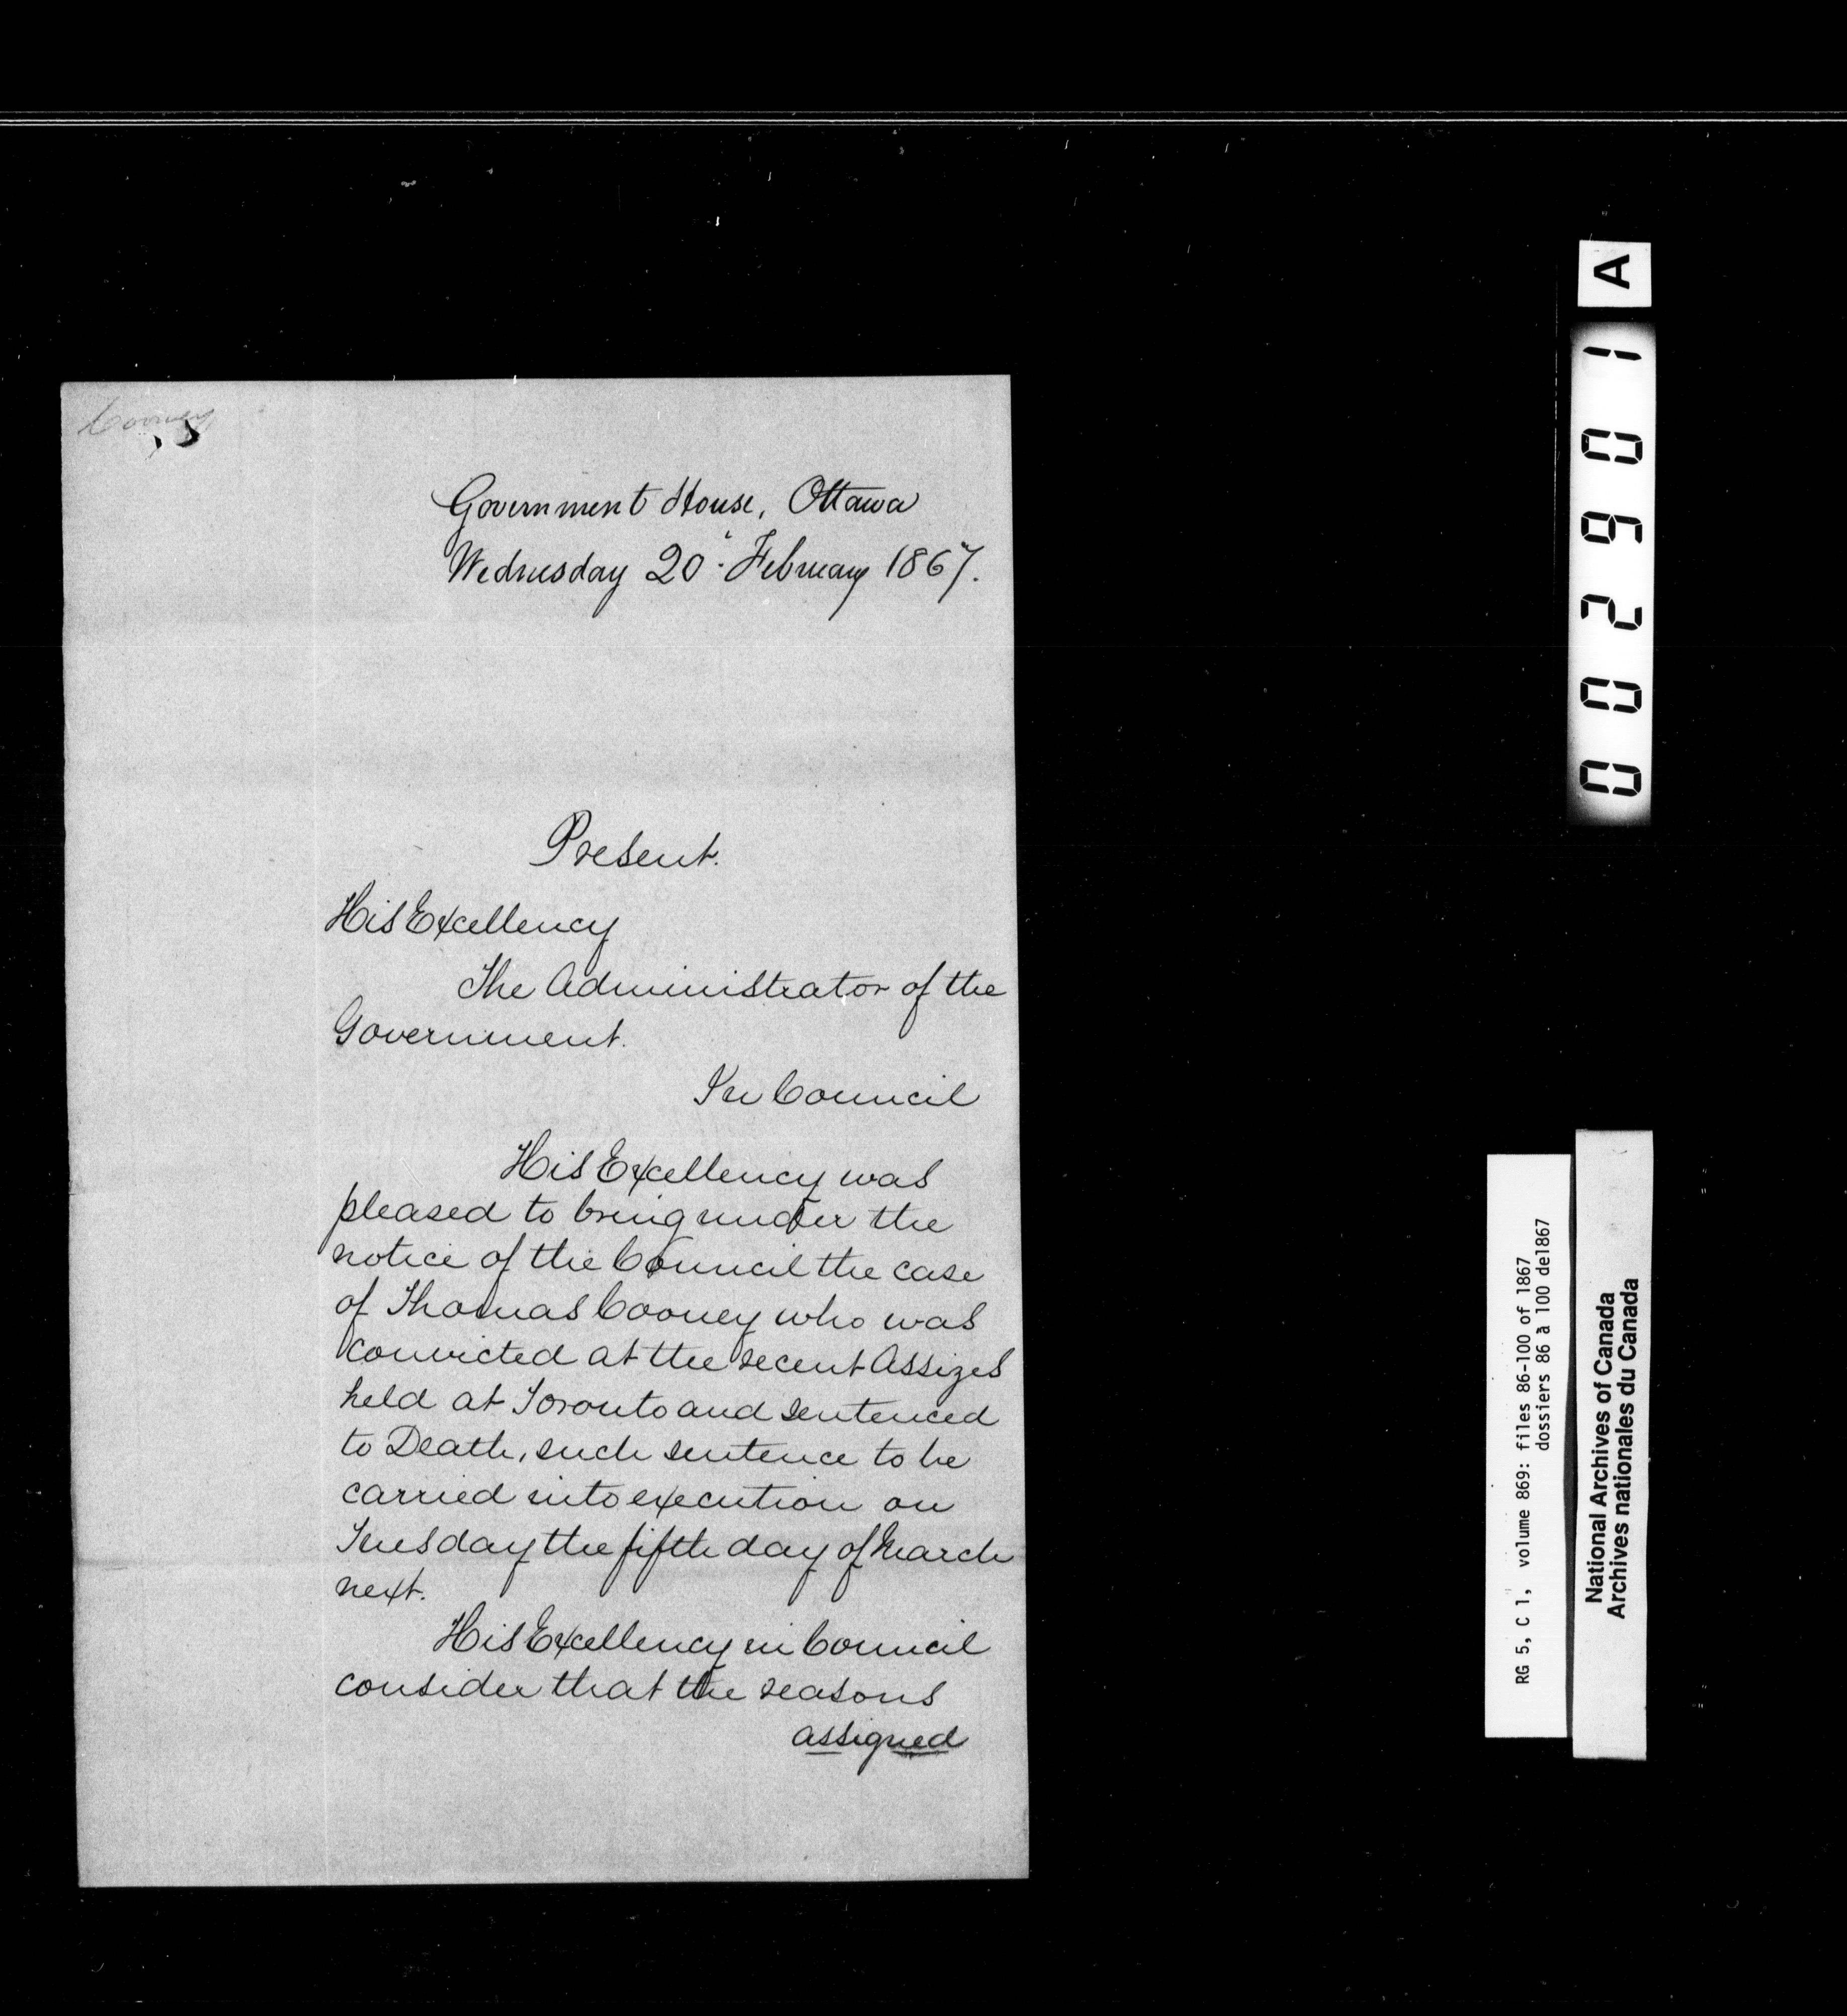 Cooney
Government House, Ottawa
Wednesday 20" February 1867.
Present.
His Excellency
The Administrator of the
Government.
In Council
His Excellency was
pleased to bring under the
notice of the Council the case
of Thomas Cooney who was
convicted at the recent Assizes
held at Toronto and sentenced
to Death, such sentence to be
carried into execution on
Tuesday the fifth day of March
next.
His Excellency in Council
consider that the reasons
assigned
002901 A
RG 5, C 1, volume 869: files 86-100 of 1867
dossiers 86 à 100 de1867
National Archives of Canada
Archives nationales du Canada